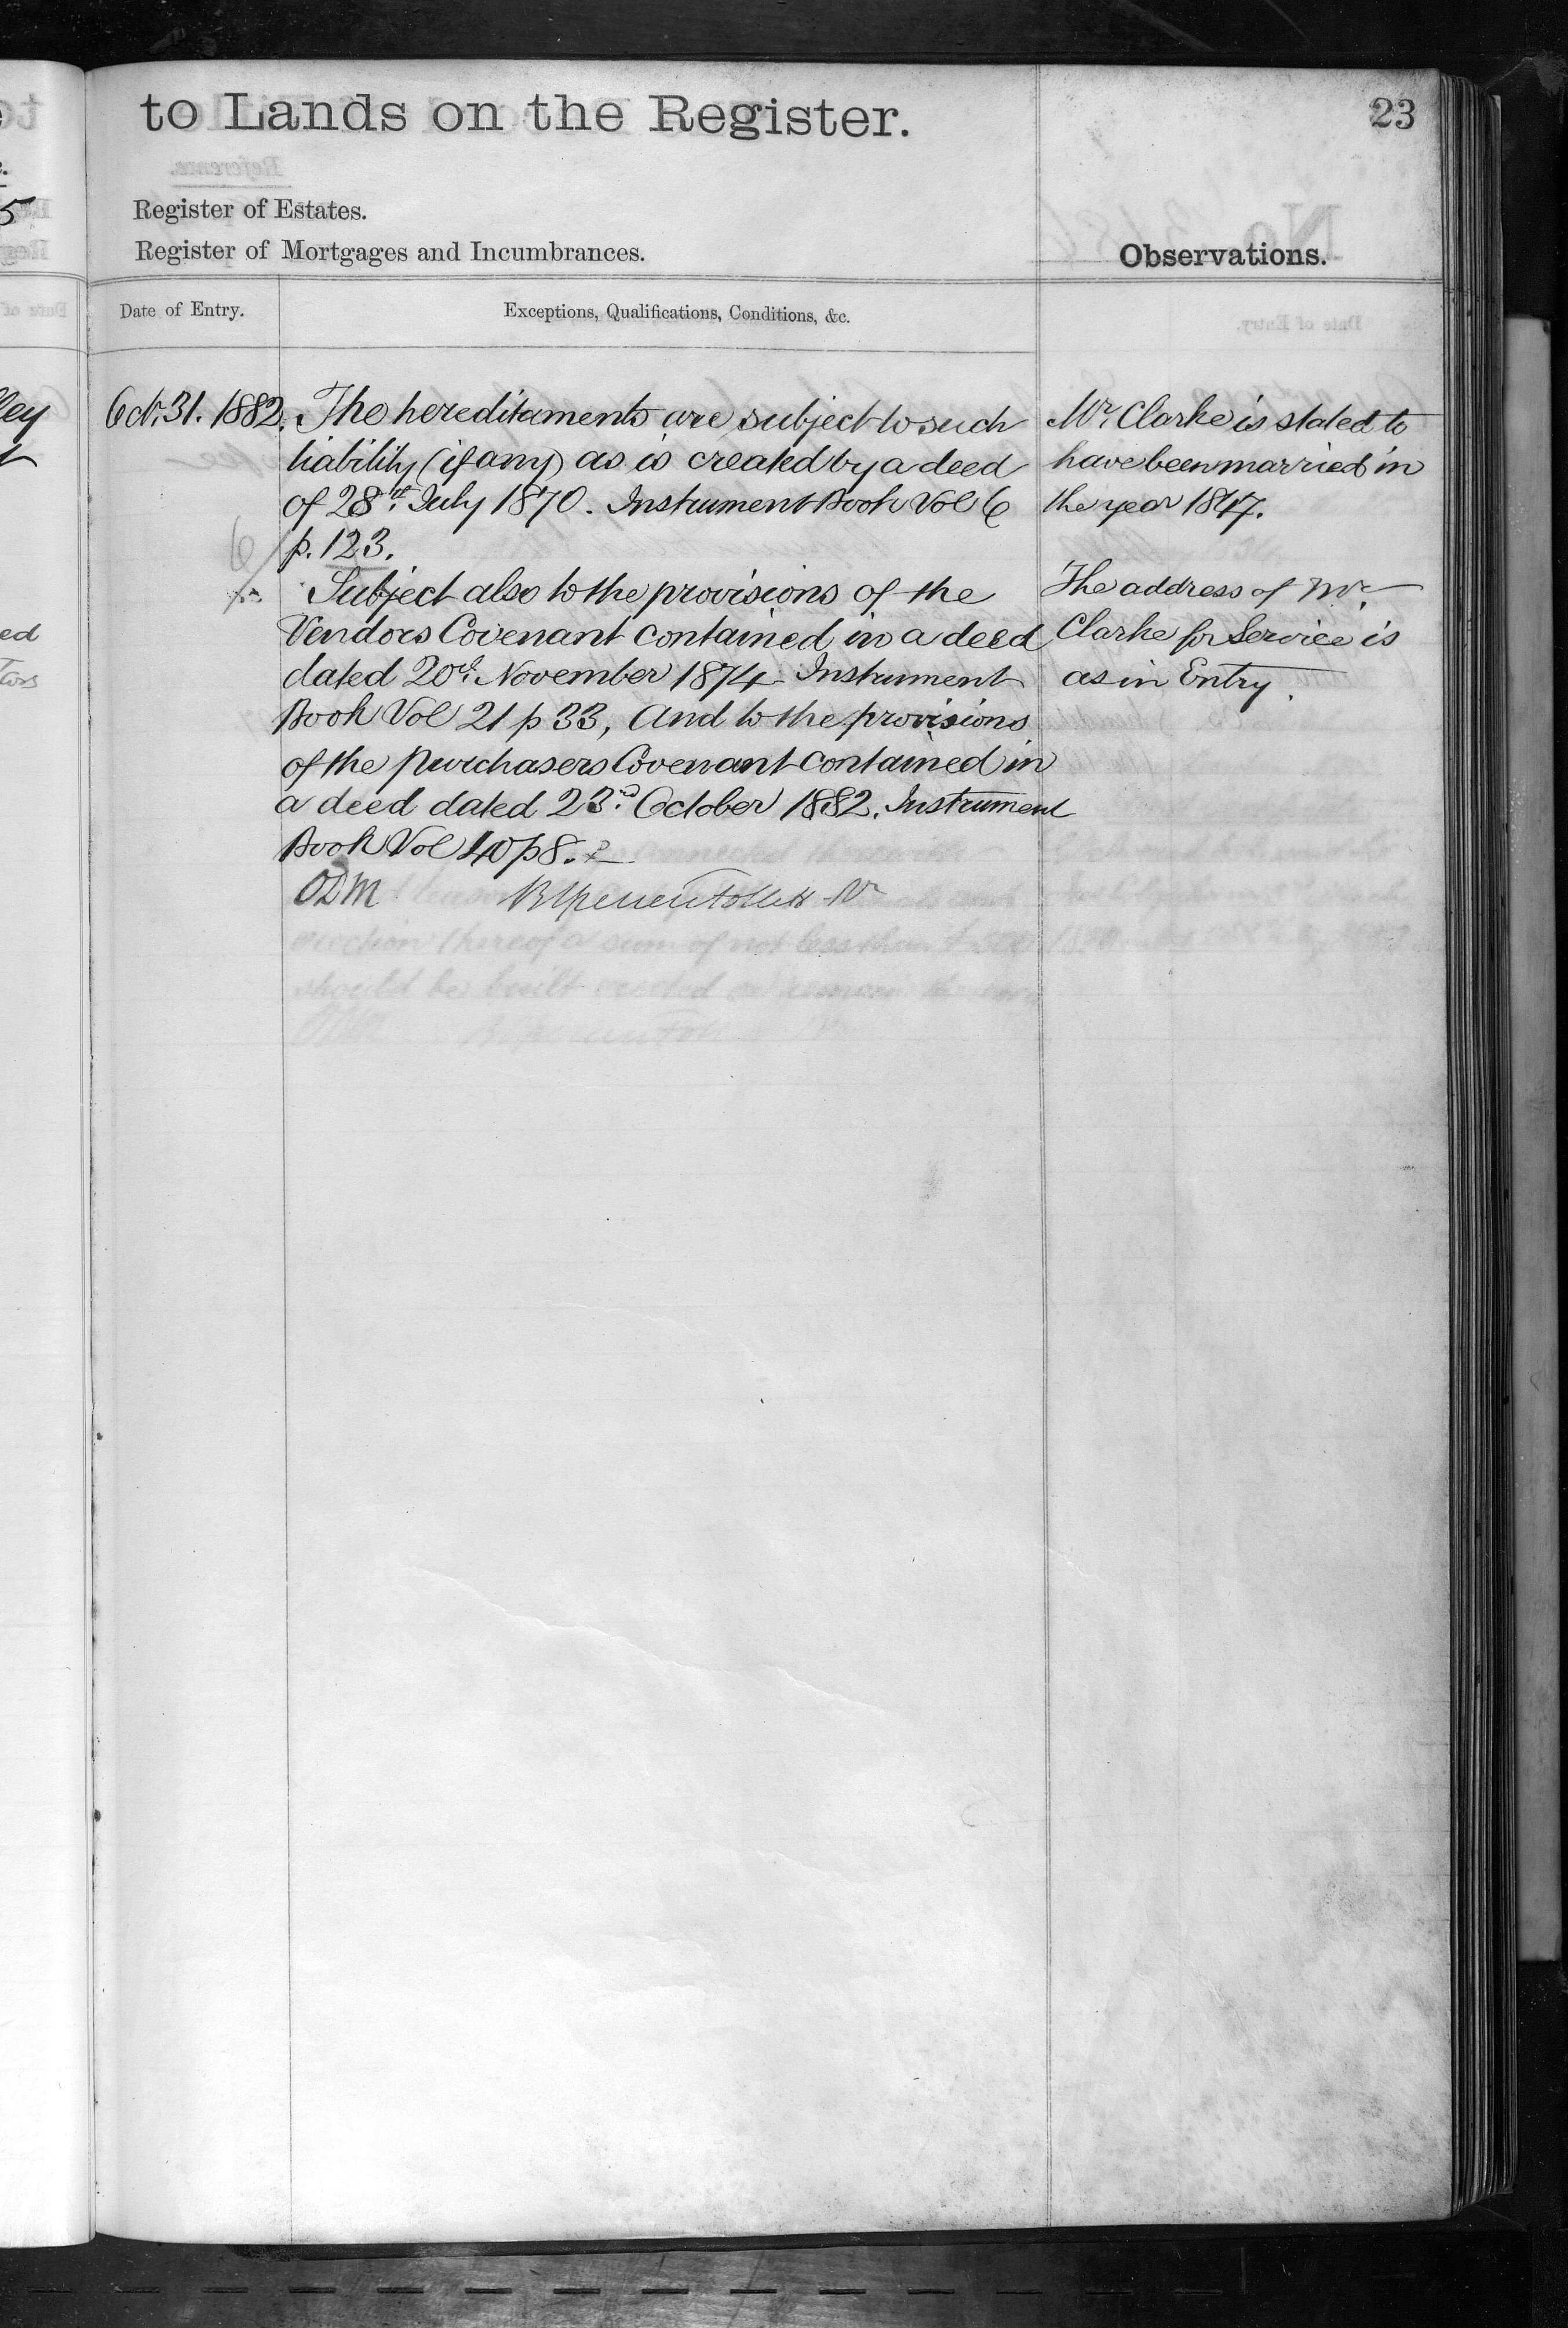 to Lands on the Register.
23
Register of Estates.
Register of Mortgages and Incumbrances.
Observations.
Date of Entry.
Exceptions, Qualifications, Conditions, &c.
Oct. 31. 1882. The hereditaments are subject to such
liability (if any) as is created by a deed
of 28th July 1870. Instrument Book Vol 6
p. 123.
Subject also to the provisions of the
Vendors Covenant contained in a deed
dated 20th November 1874 Instrument
Book Vol 21 p 33, And to the provisions
of the purchasers Covenant contained in
a deed dated 23rd October 1882. Instrument
Book Vol 40 p 8.
ODM
Mr. Clarke is stated to
have been married in
the year 1847.
The address of Mr.
Clarke for Service is
as in Entry.